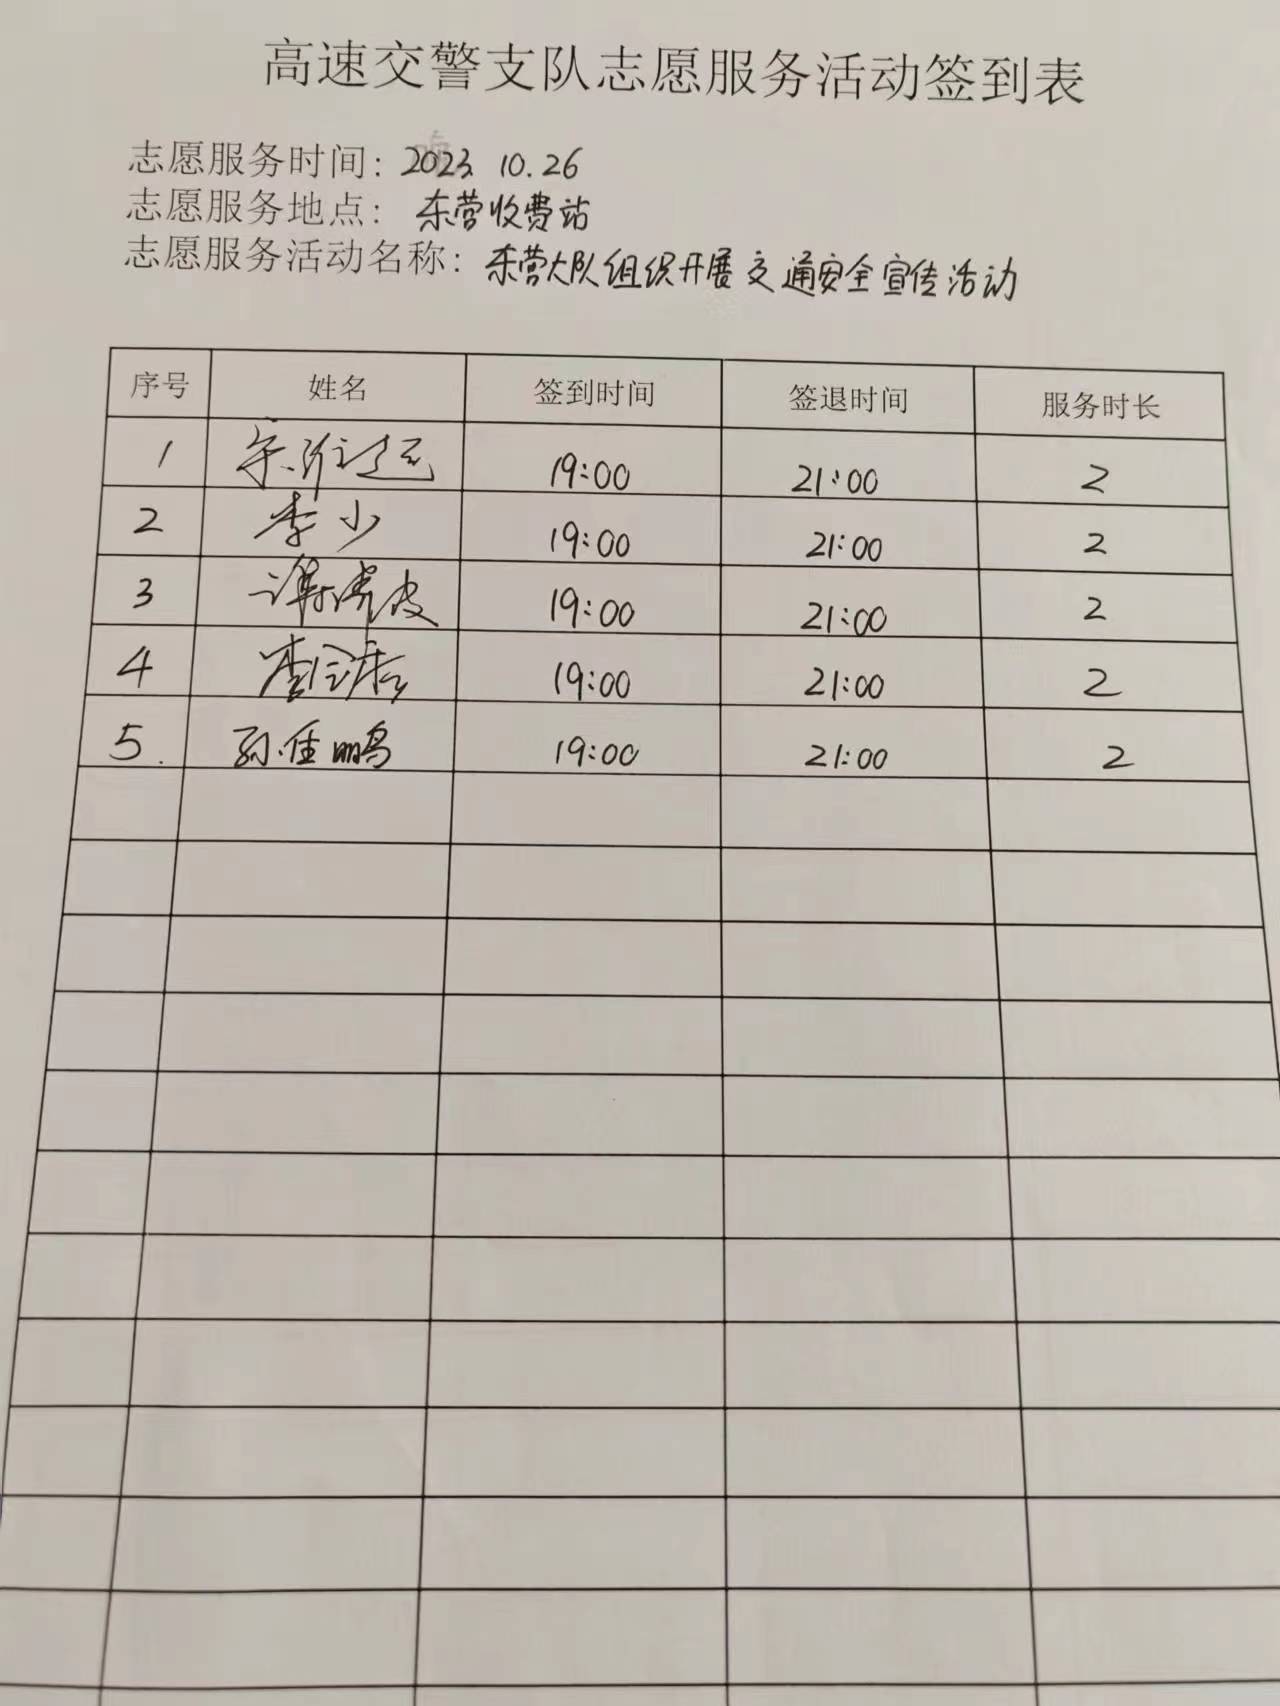 高速交警支队志愿服务活动签到表
志愿服务时间: 2023. 10.26
志愿服务地点: 东营收费站
志愿服务活动名称: 东营大队组织开展交通安全宣传活动
序号 姓名 签到时间 签退时间 服务时长
1 19:00 21:00 2
2 李少 19:00 21:00 2
3 19:00 21:00 2
4 19:00 21:00 2
5. 孙佳鹏 19:00 21:00 2